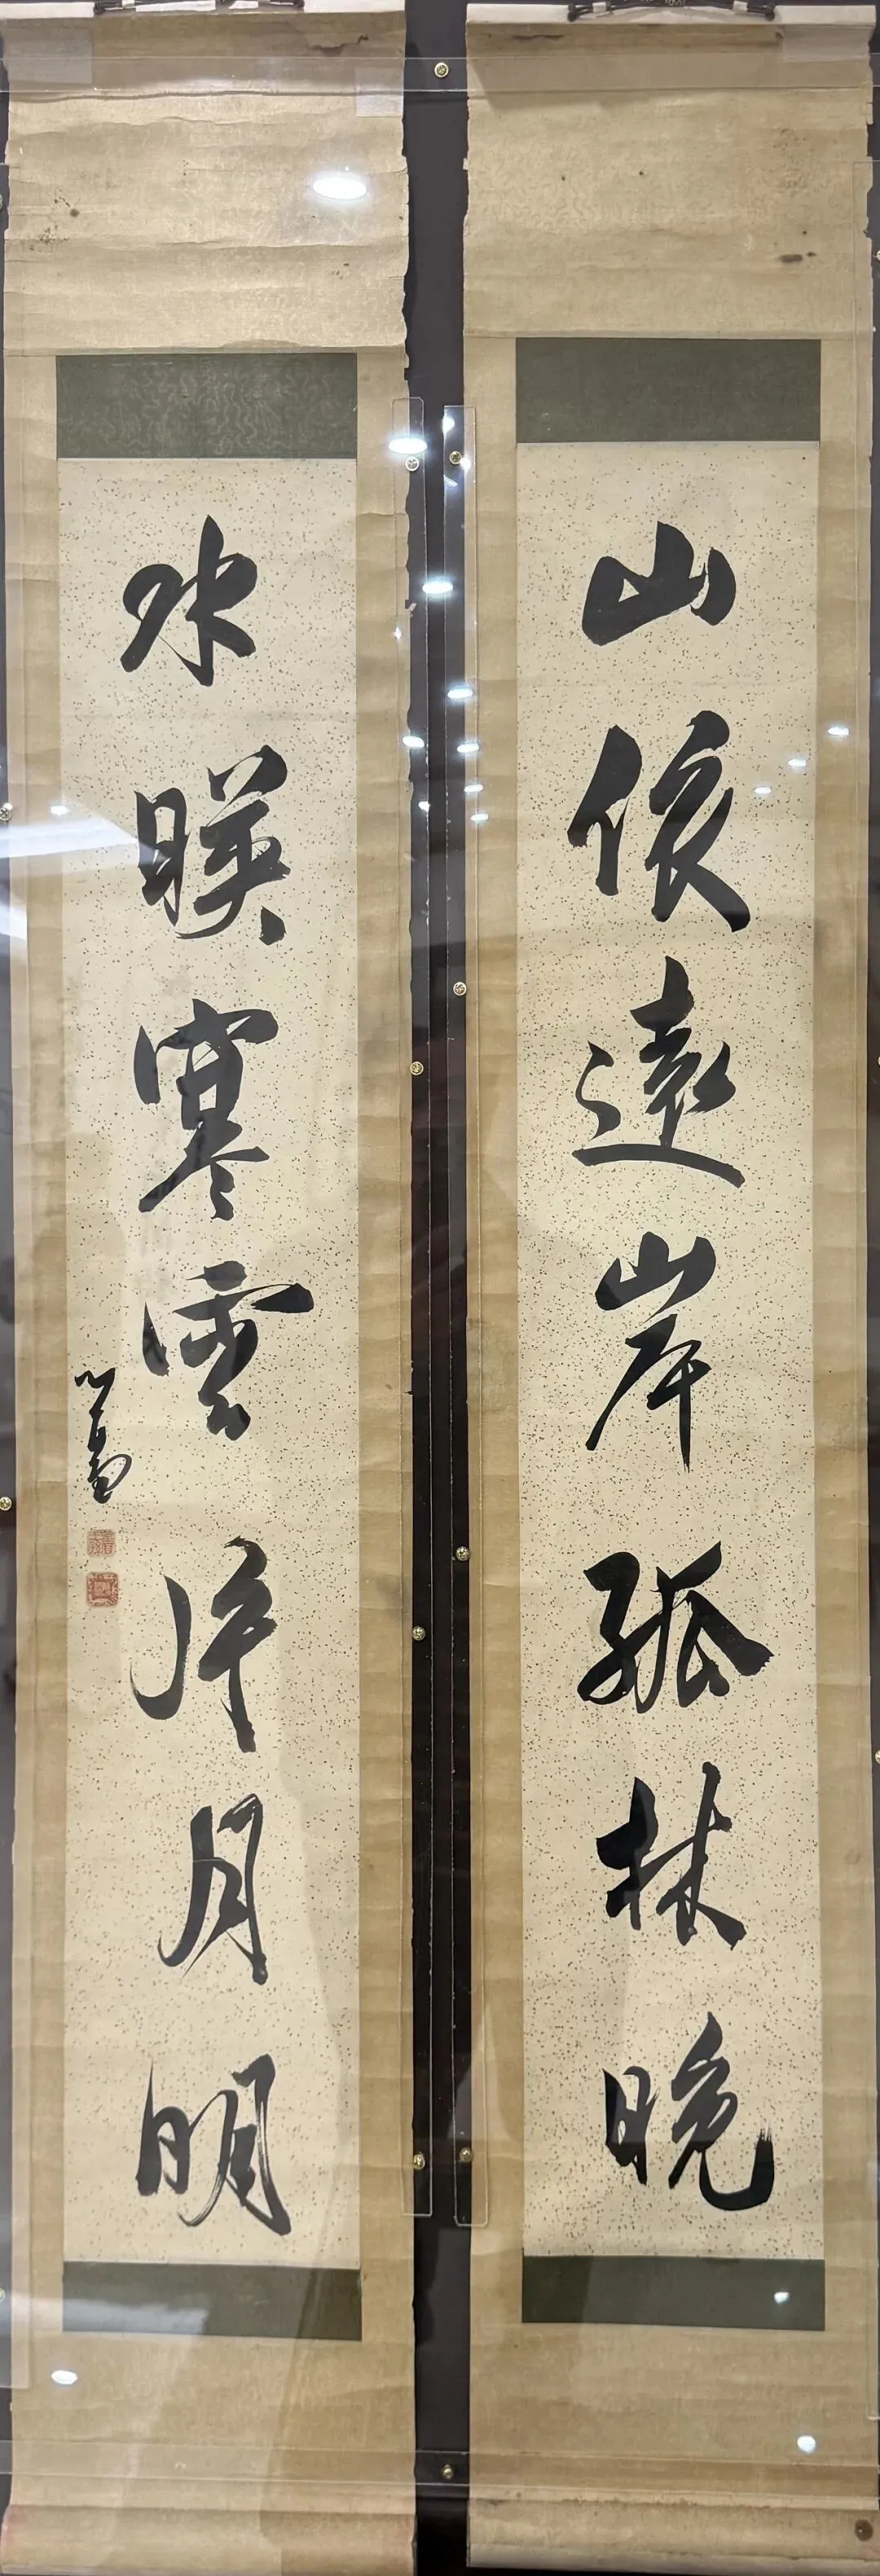 山依遠岸孤林晚
水暎寒雲片月明
心畬